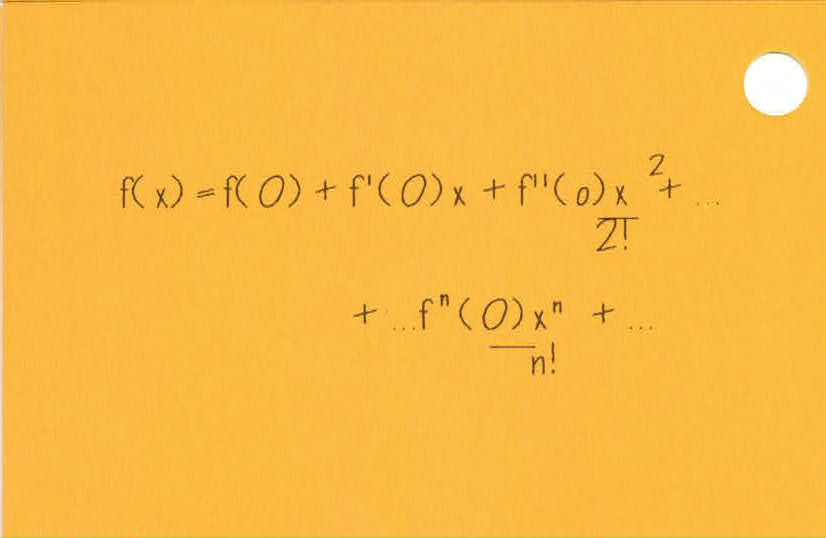 f(x) = f(0) + f'(0)x + f''(0)x²/2! + ...
+ ...fⁿ(0)xⁿ/n! + ...